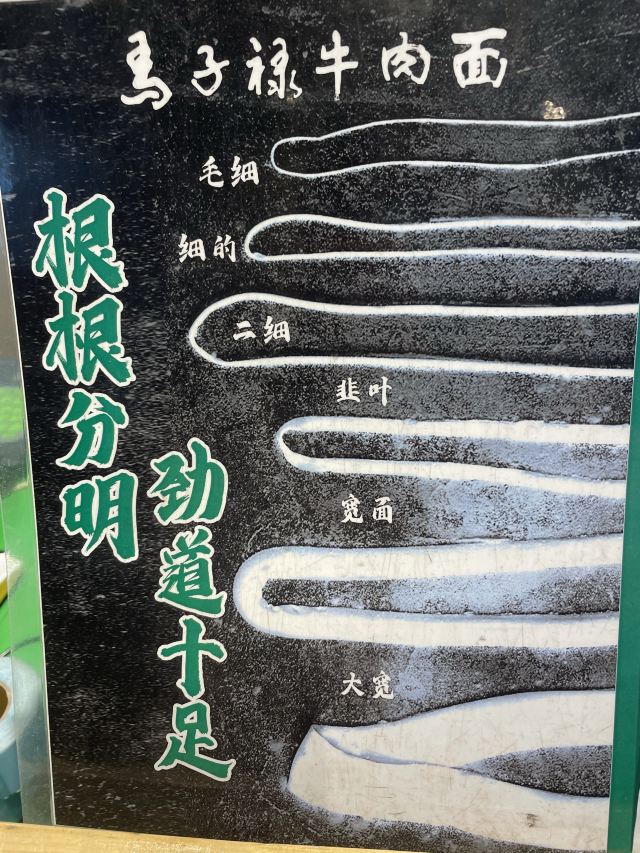 马子禄牛肉面
毛细
细的
二细
韭叶
宽面
大宽
根根分明
劲道十足